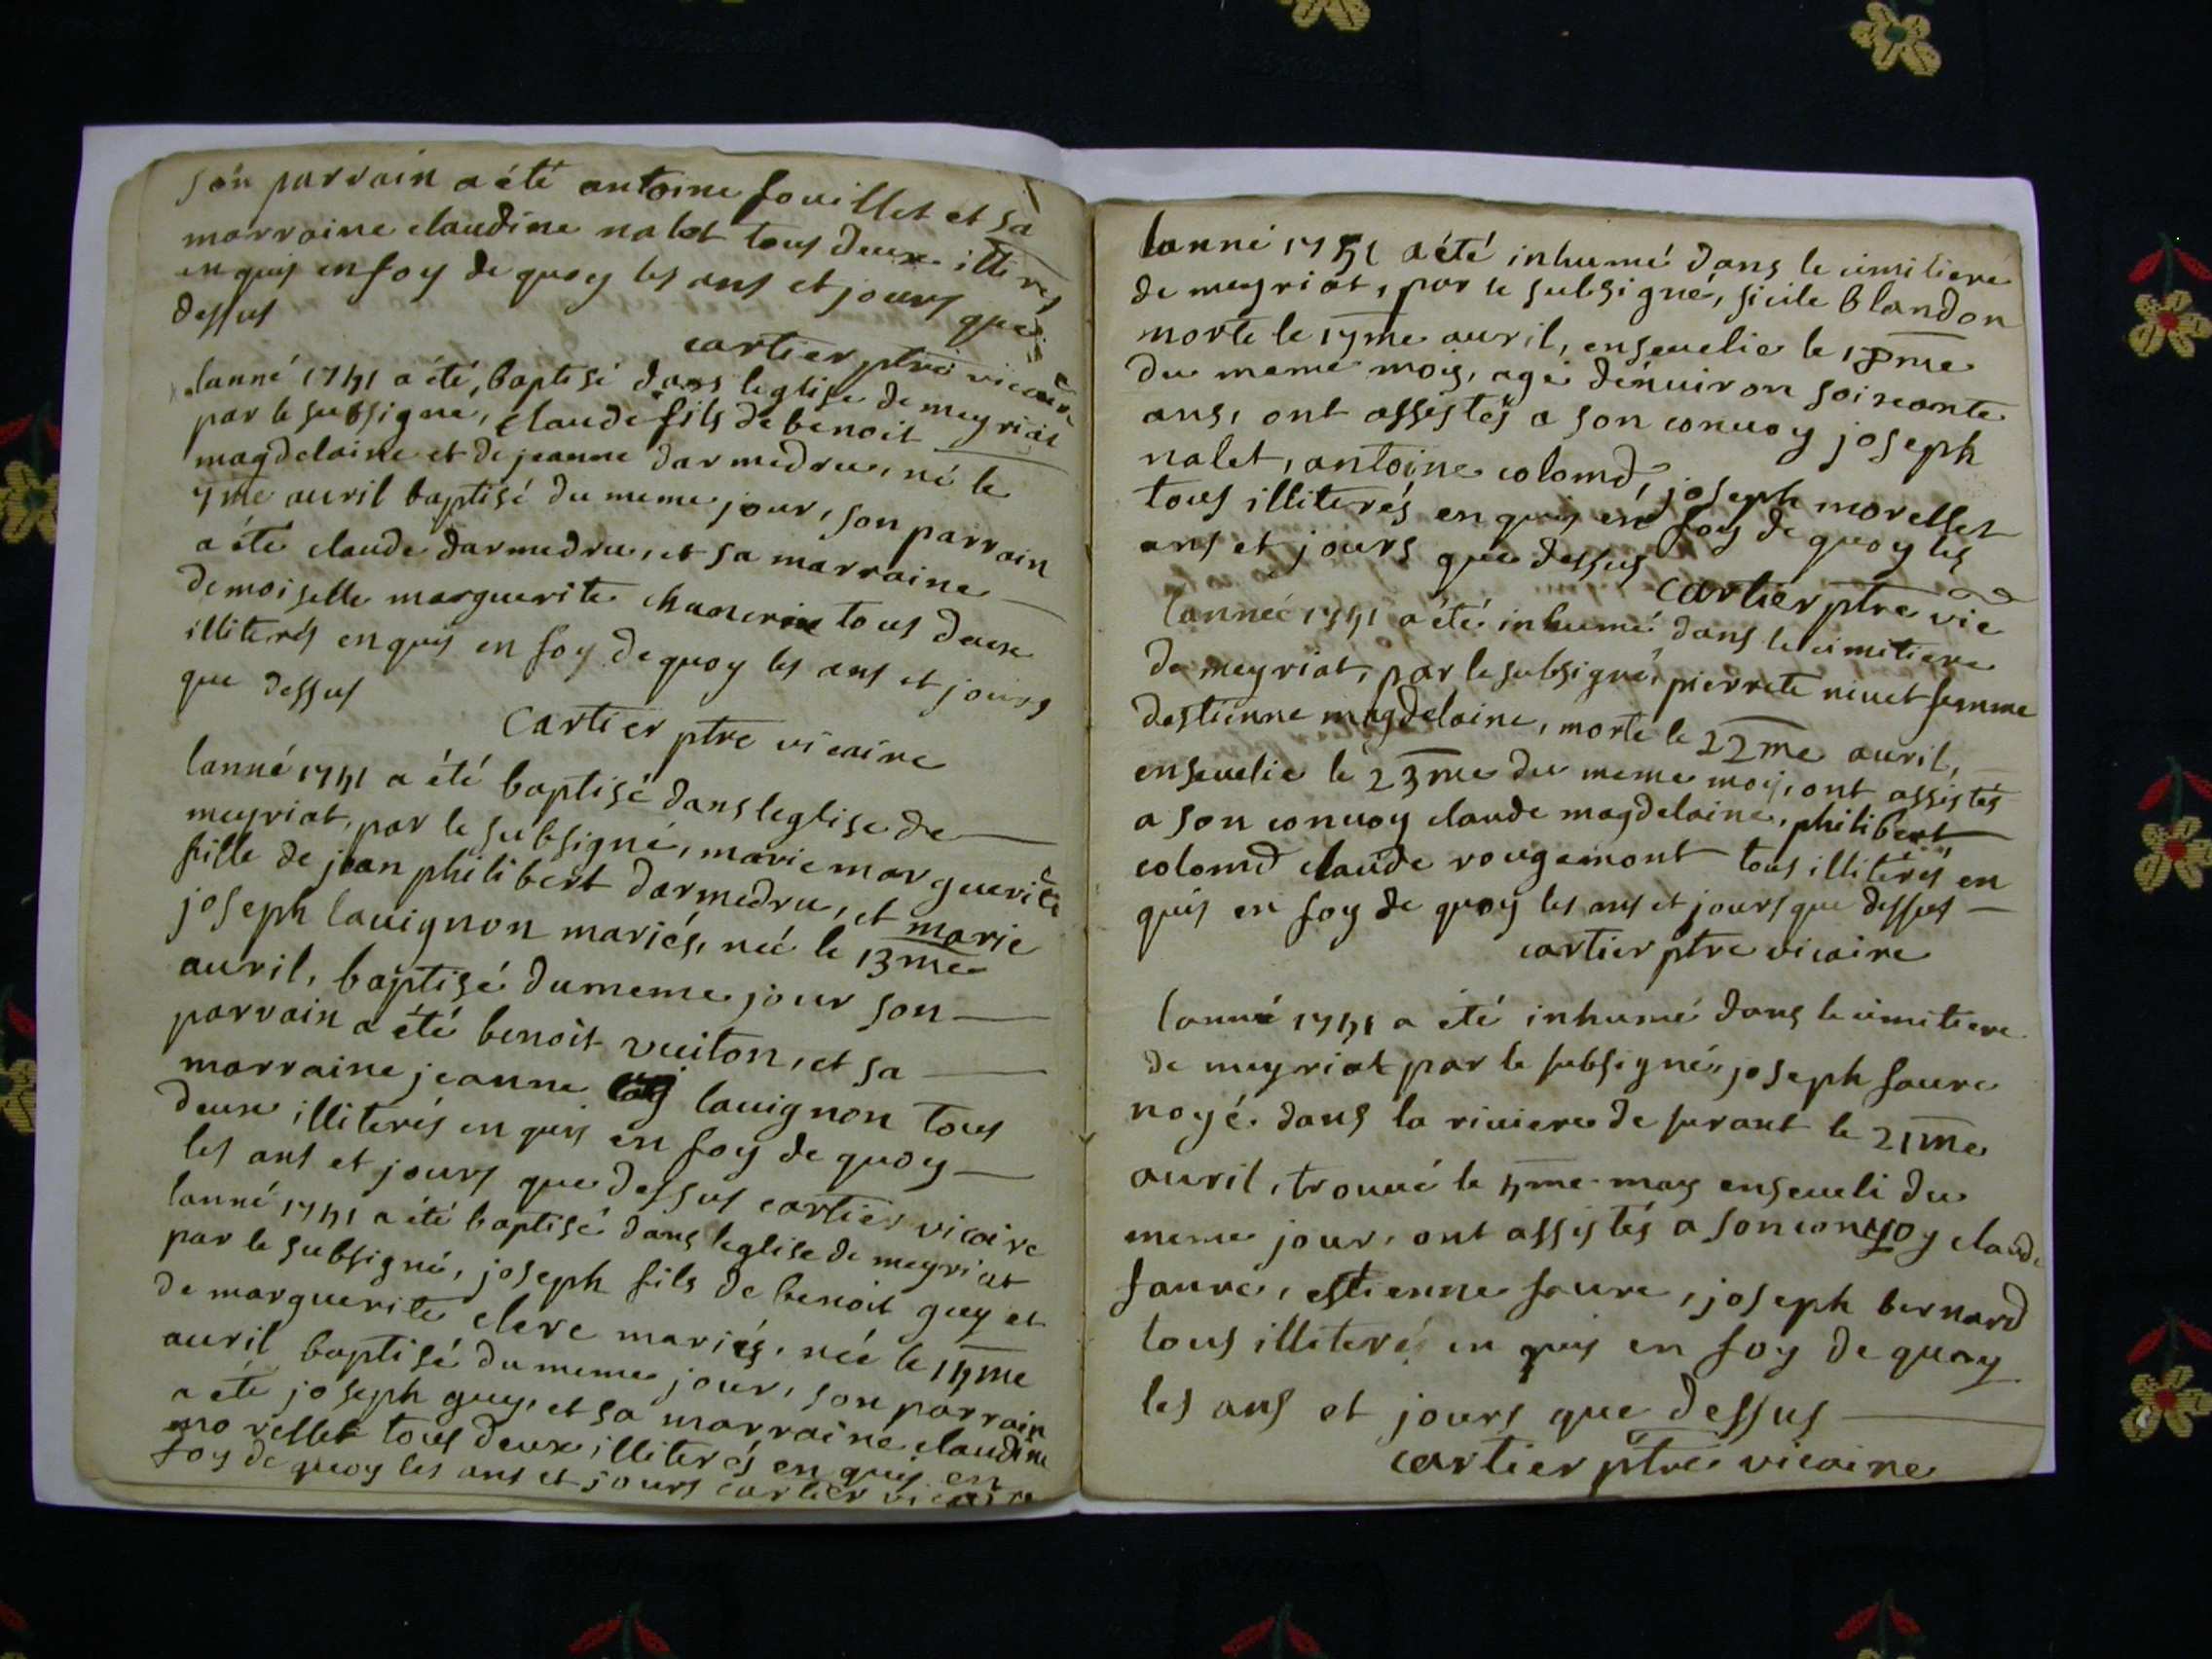 son parrain a été antoine fouillet et sa
marraine claudine nalet tous deux illirés
enquis en foy de quoy les ans et jours que
dessus
cartier ptre vicaire
lanné 1751 a été, baptisé dans leglise de meyriat
par le subsigné, claude fils de benoit
magdelaine et de jeanne darmedru, né le
7me auril baptisé du meme jour, son parrain
a été claude darmedru, et sa marraine
demoiselle marguerite tous deux
illiterés enquis en foy de quoy les ans et jours
que dessus
cartier ptre vicaire
lanné 1751 a été baptisé dans leglise de
meyriat, par le subsigné, marie marguerite
fille de jean philibert darmedru, et marie
joseph lauignon mariés, neé le 13me
auril, baptisé du meme jour son
parrain a été benoit vuiton, et sa
marraine jeanne lauignon tous
deux illiterés enquis en foy de quoy
les ans et jours que dessus cartier vicaire
lanné 1751 a été baptisé dans leglise de meyriat
par le subsigné, joseph fils de benoit guy et
de marguerite clerc mariés, née le 15me
auril baptisé du meme jour, son parrain
a été joseph guy, et sa marraine claudine
morellet tous deux illiterés enquis en
foy de quoy les ans et jours cartier vicaire
lanné 1751 a été inhumé dans le cimitiere
de meyriat, par le subsigné, sicile blandon
morte le 17me auril, enseuelie le 18me
du meme mois, agé dénuiron soixante
ans, ont assistés a son conuoy joseph
nalet, antoine colomd, joseph morellet
tous illiterés enquis en foy de quoy les
ans et jours que dessus
cartier ptre vic
lanneé 1751 a été inhumé dans le cimitiere
de meyriat, par le subsigné, pierrete niuet femme
destienne magdelaine, morte le 22me auril,
enseuelie le 23me du meme mois, ont assistés
a son conuoy claude magdelaine, philibert
colomd claude rougemont tous illiterés en
quis en foy de quoy les ans et jours que dessus
cartier ptre vicaire
lanné 1751 a été inhumé dans le cimitiere
de meyriat par le subsigné, joseph faure
noyé dans la riuiere de surant le 21me
auril, trouué le 5me may enseueli du
meme jour, ont assistés a son conuoy claude
faure, estienne faure, joseph bernard
tous illiterés en quis en foy de quoy
les ans et jours que dessus
cartier ptre vicaire